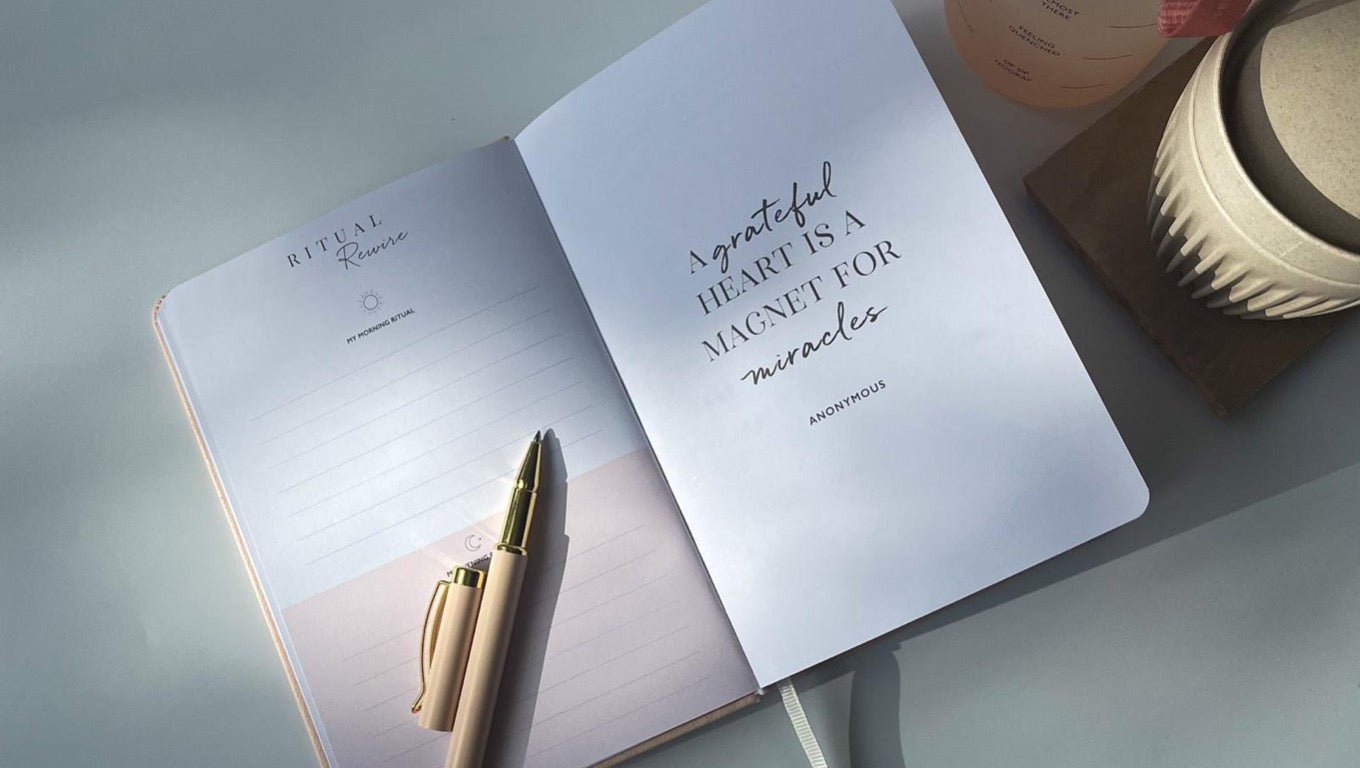 RITUAL
Rewire
MY MORNING RITUAL
A grateful
HEART IS A
MAGNET FOR
miracles
ANONYMOUS
MOST
THERE
FEELING
QUENCHED
SIP SIP
HOORAY